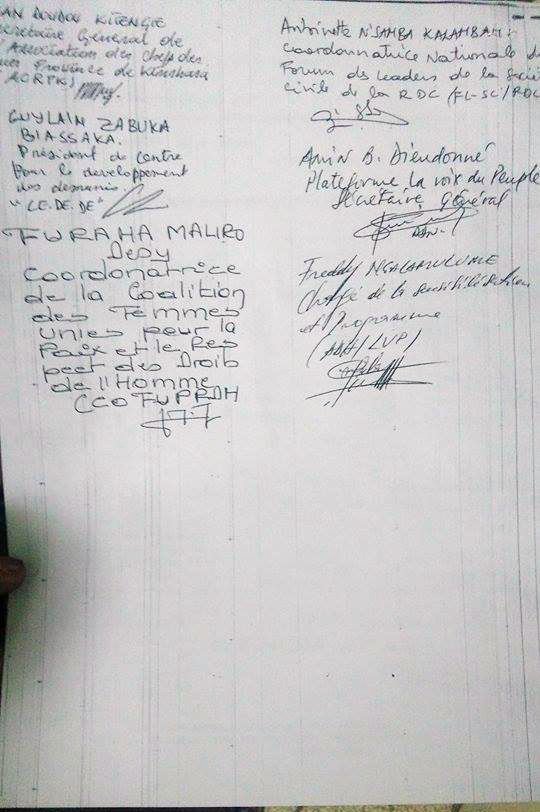 KITENGE
Secretaire General de
Association des Chefs des
Province de Kinshasa
GUYLAIN ZABUKA
BIASSAKA.
Président de Centre
Pour le developpement
des demunis.
"CE.DE.DE"
FURAHA MALIRO
Dedy
Coordonatrice
de la Coalition
des Femmes
Unies pour la
Paix et le Res
pect des Droits
de l'Homme
CCOFUPRDH
Antoinette N'SAMBA KALAMBAYI
Coordonnatrice Nationale du
Forum des leaders de la Societe
Civile de la RDC (FL-SC/RDC
Amin B. Dieudonné
Plateforme La voix du Peuple
Sécrétaire Général
Freddy NGALAMULUME
Chargé de la sensibilisation
et Programme